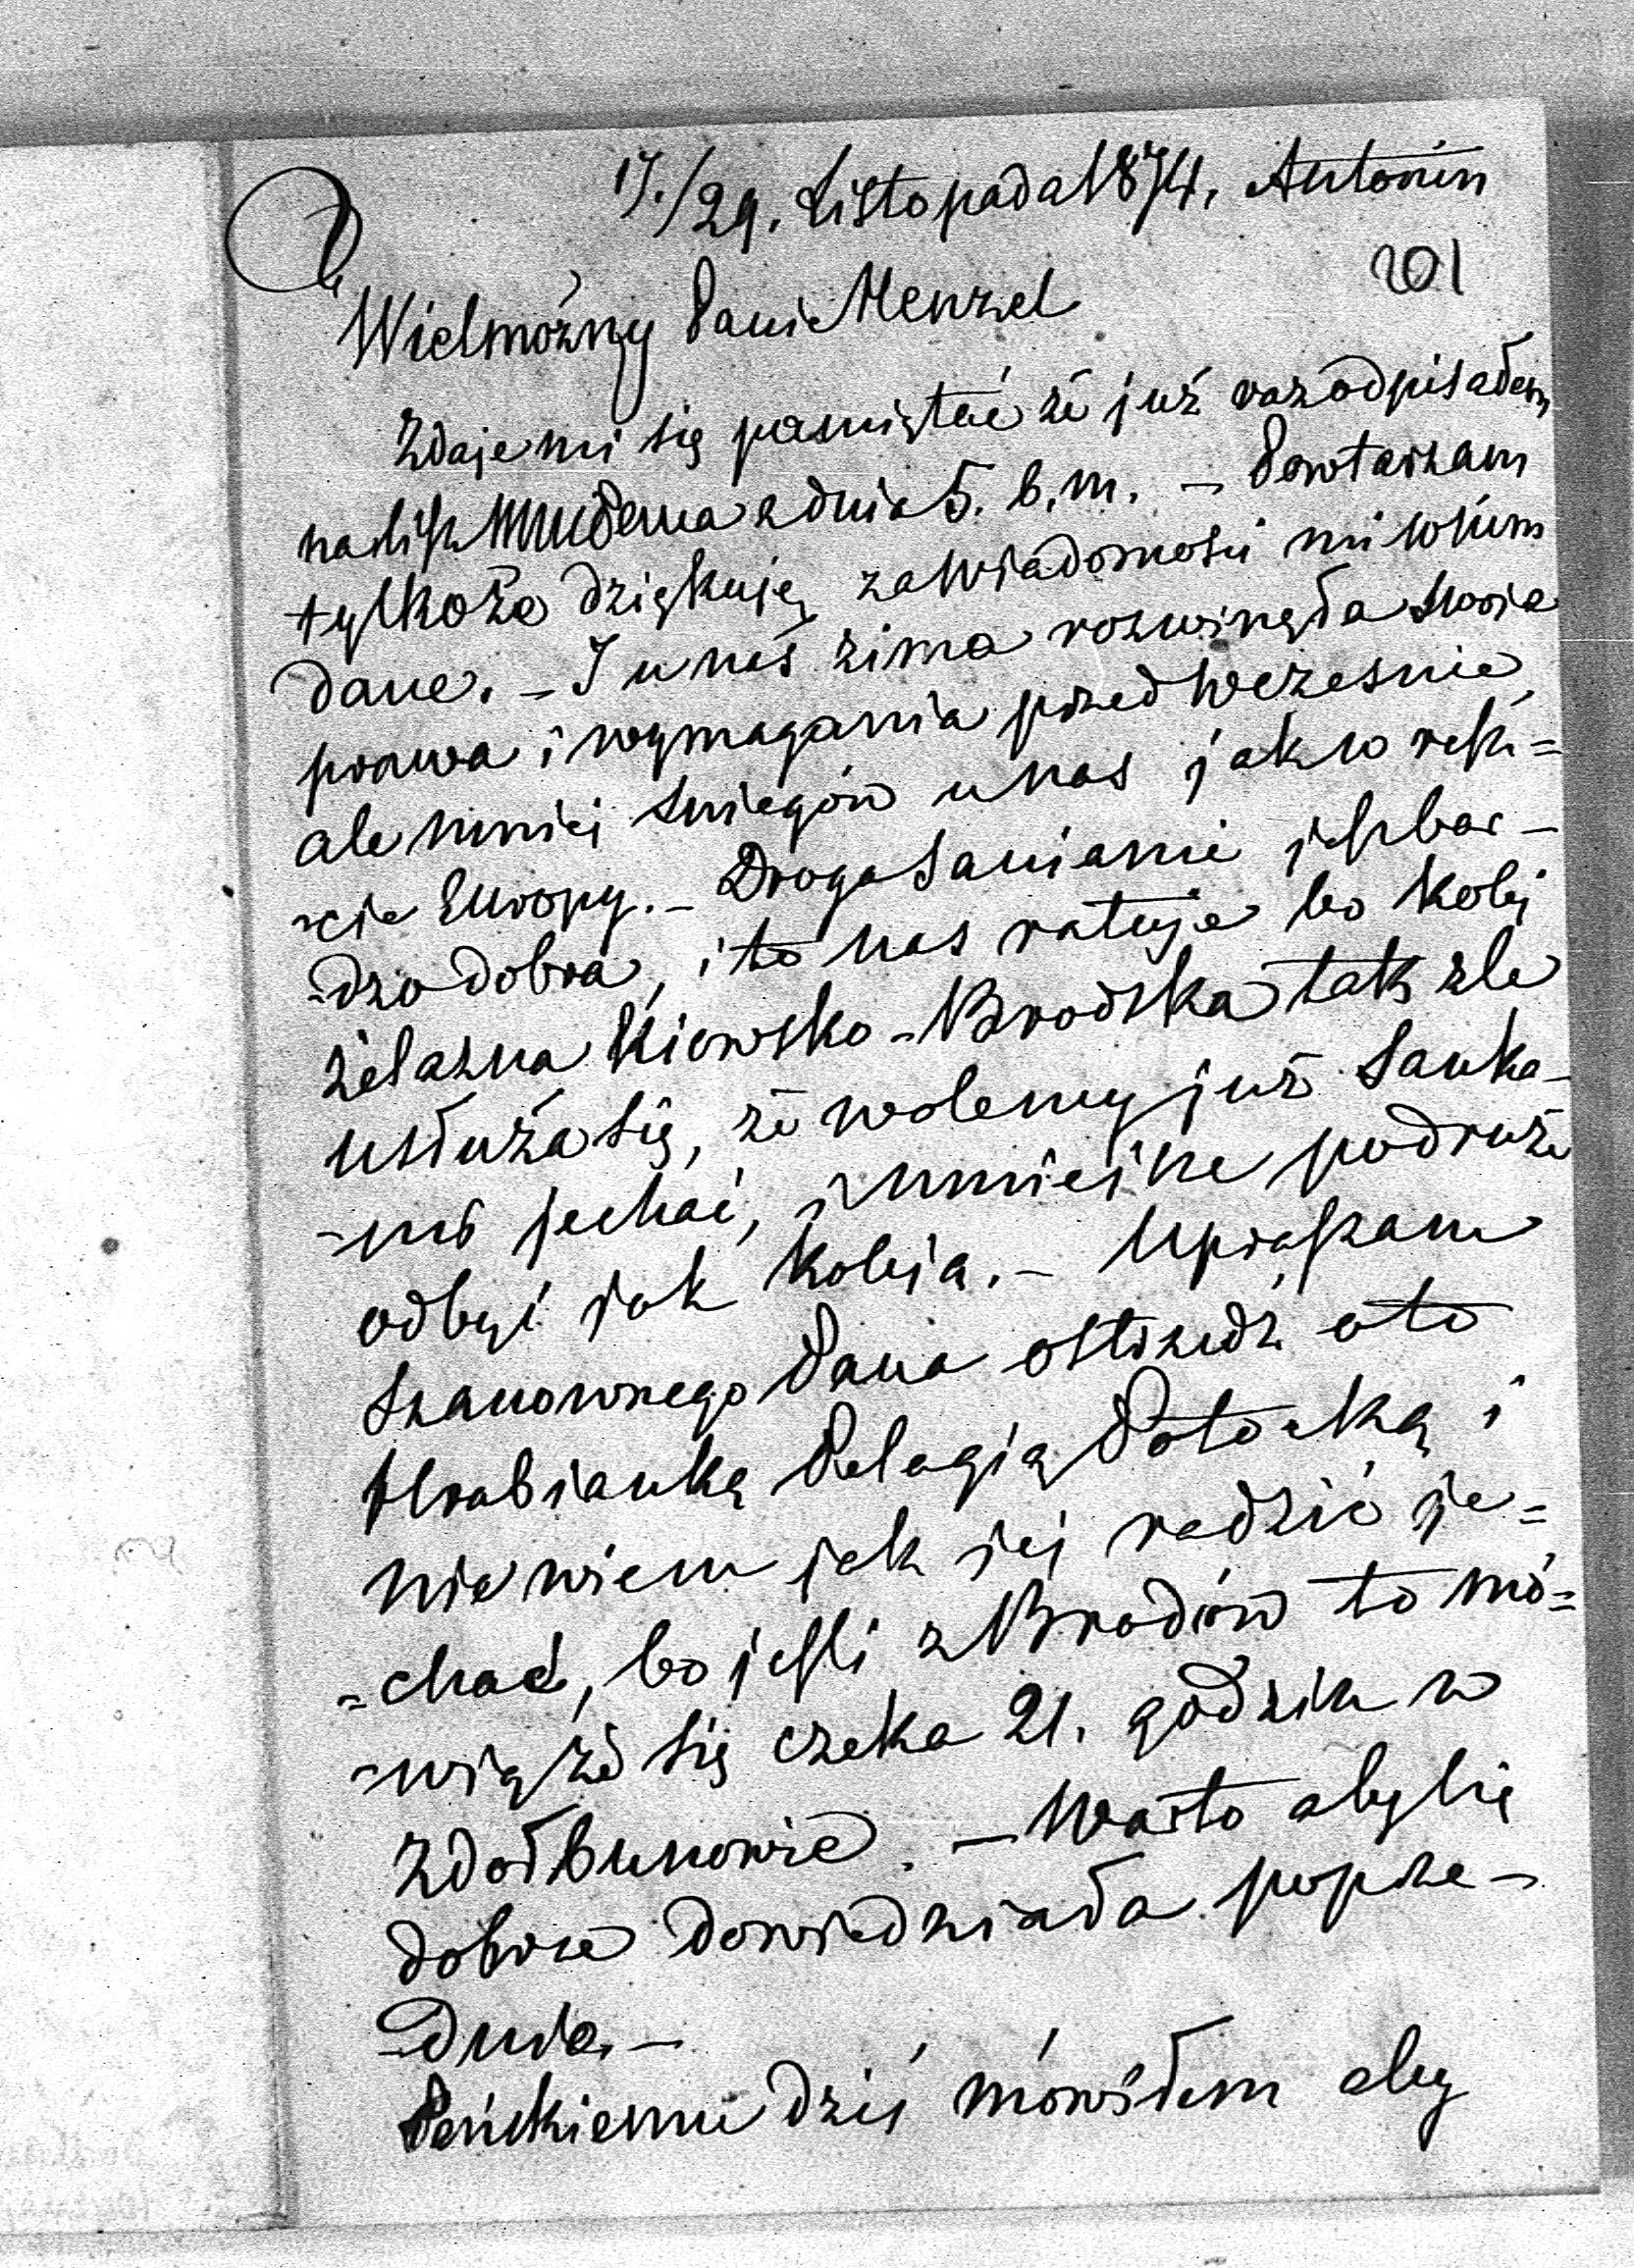 17./29. Listopada 1874, Antonin
201
Wielmożny Panie Menzel
Zdaje mi się pamiętać że już raz odpisałem
na list z dnia 5. b. m. – Powtarzam
tylko że dziękuję za wiadomości mi w nim
dane. – I u nas zima rozwinęła swoje
prawa i wymagania przedwcześnie,
ale mniej sniegów u nas jak w resz=
-cie Europy. – Droga saniami jest bar-
-dzo dobra, i to nas ratuje bo kolej
żelazna Kiowsko-Brodska tak zle
usłuża się, że wolemy już sanka-
-mi jechać, i mniejsze podruże
odbyć jak koleją. – Upraszam
Szanownego Pana ostrzedz o to
Hrabiankę Pelagię Potocką i
nie wiem jak jej radzić je=
=chać, bo jesli z Brodów to mó=
-wią że się czeka 21. godzin w
Zdołbunowie. – Warto aby się
dobrze dowiedziała poprze-
-dnio. –
dziś mówiłem aby